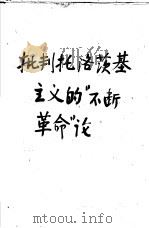 批判托洛茨基
主义的“不断
革命”论
mtoou.info dushu